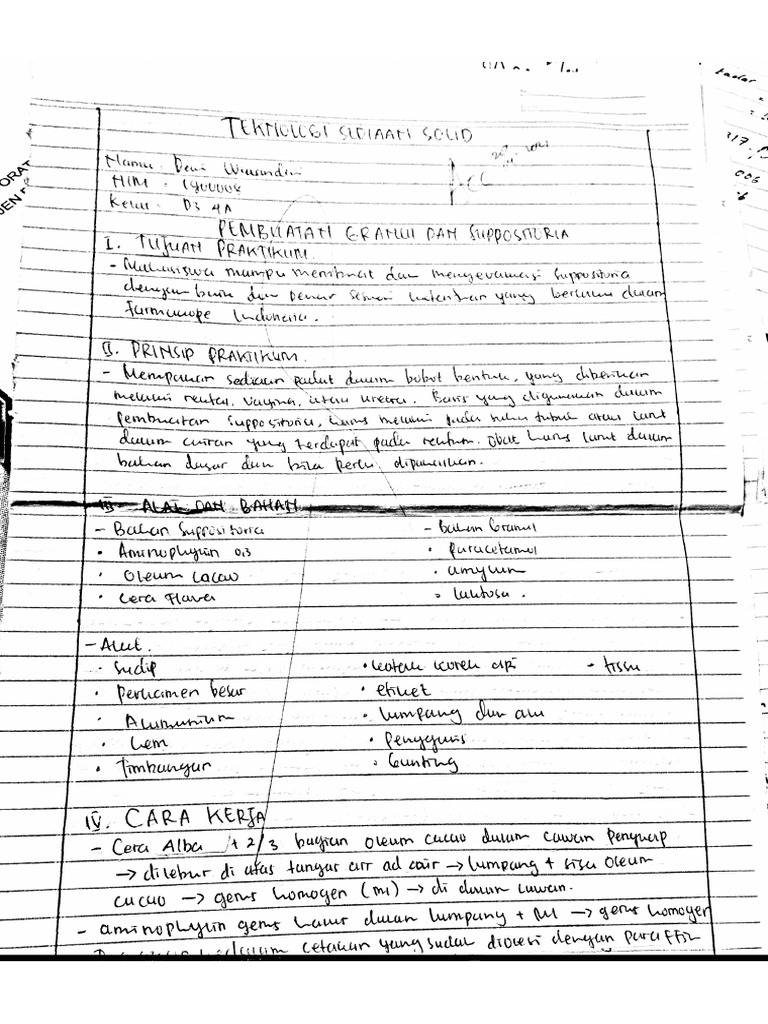 TEKNOLOGI SEDIAAN SOLID
Nama : Dewi Wulandari
NIM : 1900008
Kelas : D3 4A
Acc
PEMBUATAN GRANUL DAN SUPPOSITORIA
I. TUJUAN PRAKTIKUM
- Mahasiswa mampu membuat dan mengevaluasi suppositoria
dengan baik dan benar sesuai ketentuan yang berlaku dalam
Farmakope Indonesia.
II. PRINSIP PRAKTIKUM
- sediaan padat dalam bobot bentuk, yang diberikan
melalui rektal, vagina, atau uretra. Basis yang digunakan dalam
pembuatan suppositoria, harus pada suhu tubuh atau larut
dalam cairan yang terdapat pada rektum. Obat harus larut dalam
bahan dasar dan bila perlu dipanaskan.
III. ALAT DAN BAHAN
- Bahan Suppositoria - Bahan Granul
• Aminophylin 0,3 • paracetamol
• Oleum Cacao • amylum
• Cera Flava • laktosa.
- Alat.
• Sudip • kotak korek api - tissu
• Perkamen besar • etiket
• Alumunium • lumpang dan alu
• Lem • Penggaris
• Timbangan • Gunting
IV. CARA KERJA
- Cera Alba + 2/3 bagian oleum cacao dalam cawan penguap
→ dilebur di atas tangas air ad cair → lumpang + sisa oleum
cacao → gerus homogen (M1) → di dalam cawan.
- aminophylin gerus halus dalam lumpang + M1 → gerus homogen
cetakan yang sudah diolesi dengan paraffin